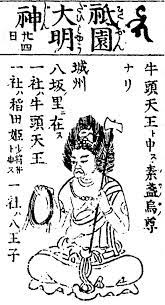 祇園
大明
神
廿四
日
牛頭天王ト申ス素盞烏尊
ナリ
城州
八坂里ニ在ス
一社牛頭天王
一社ハ稲田姫少将井ト申ス 一社ハ八王子